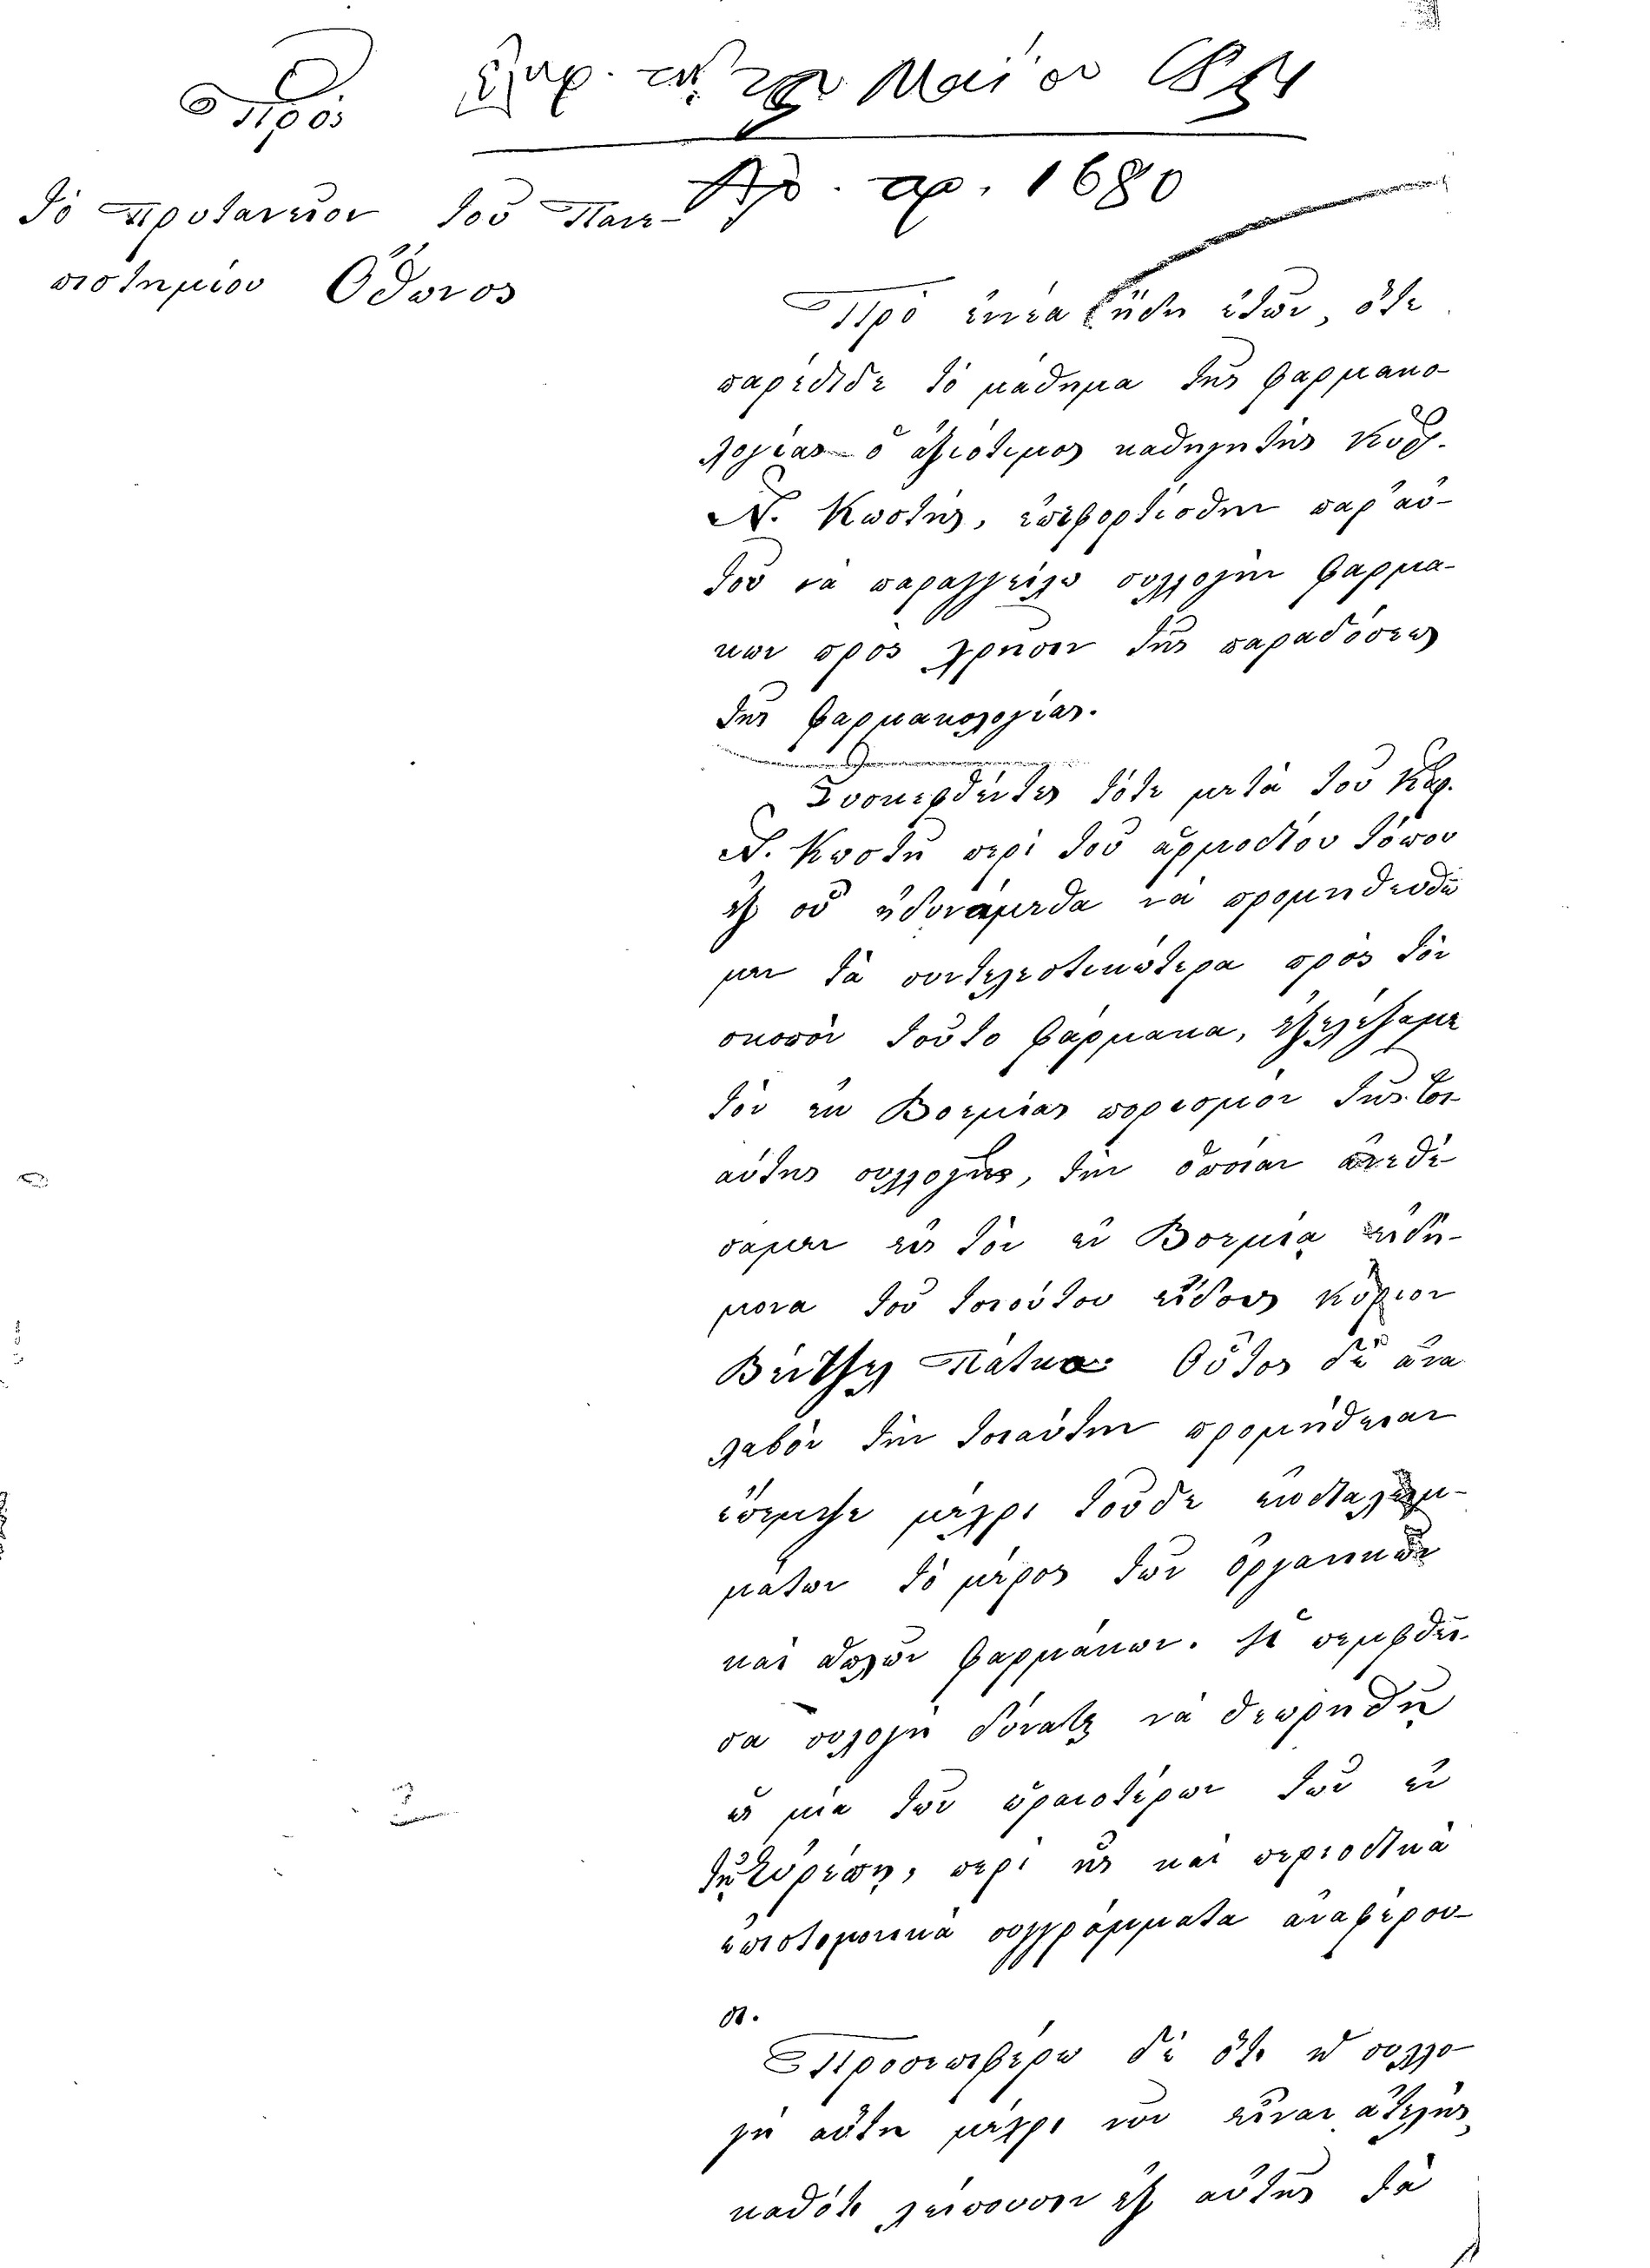 Πρὸς
τὸ πρυτανεῖον τοῦ Πανε-
πιστημίου Ὄθωνος
Μαΐου 1851
Ἀρ. πρ. 1680
Πρὸ ἐννέα ἤδη ἐτῶν, ὅτε
παρέδιδε τὸ μάθημα τῆς φαρμακο-
λογίας ὁ ἀξιότιμος καθηγητὴς Κύρ.
Ν. Κωστῆς, ἐπεφορτίσθην παρ' αὐ-
τοῦ νὰ παραγγείλω συλλογὴν φαρμά-
κων πρὸς χρῆσιν τῆς παραδόσεως
τῆς φαρμακολογίας.
Συσκεφθέντες τότε μετὰ τοῦ Κυρ.
Ν. Κωστῆ περὶ τοῦ ἁρμοδίου τόπου
ἐξ οὗ ἠδυνάμεθα νὰ προμηθευθῶ
μεν τὰ συντελεστικώτερα πρὸς τὸν
σκοπὸν τοῦτο φάρμακα, ἐξελέξαμε
τὸν ἐκ Βοεμίας πορισμὸν τῆς τοι-
αύτης συλλογῆς, τὴν ὁποίαν ἀνεθέ-
σαμεν εἰς τὸν ἐν Βοεμίᾳ εἰδή-
μονα τοῦ τοιούτου εἴδους κύριον
Βάτκα. Οὗτος δὲ ἀνα
λαβὼν τὴν τοιαύτην προμήθειαν
ἔπεμψε μέχρι τοῦδε ἐκ διαλειμ-
μάτων τὸ μέρος τῶν ὀργανικῶν
καὶ ἁπλῶν φαρμάκων. Ἡ πεμφθεῖ-
σα συλογὴ δύναται νὰ θεωρηθῇ
ὡς μία τῶν ὡραιοτέρων τῶν ἐν
τῇ Εὐρώπῃ, περὶ ἧς καὶ περιοδικὰ
ἐπιστημονικὰ συγγράμματα ἀναφέρου-
σι.
Προσεπιφέρω δὲ ὅτι ἡ συλλο-
γὴ αὕτη μέχρι νῦν εἶναι ἀτελὴς,
καθότι λείπουσιν ἐξ αὐτῆς τὰ